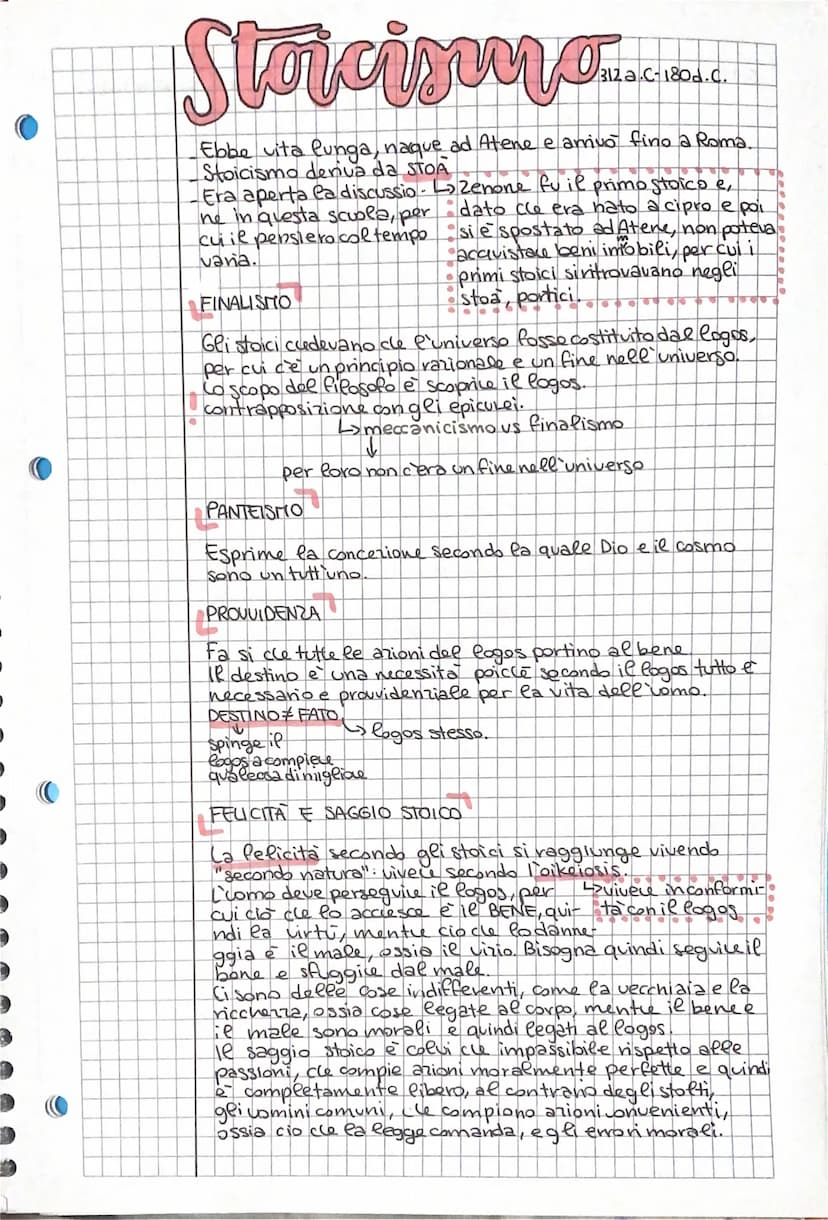 Stoicismo 312 a.C-180 d.C.
- Ebbe vita lunga, naque ad Atene e arrivò fino a Roma.
- Stoicismo deriva da STOÀ
- Era aperta la discussio-
ne in questa scuola, per
cui il pensiero col tempo
varia.
↳ Zenone fu il primo stoico e,
dato che era nato a cipro e poi
si è spostato ad Atene, non poteva
acquistare beni immobili, per cui i
primi stoici si ritrovavano negli
stoà, portici.
FINALISMO
Gli stoici credevano che l'universo fosse costituito dal logos,
per cui c'è un principio razionale e un fine nell'universo.
Lo scopo del filosofo è scoprire il logos.
! contrapposizione con gli epicurei.
↳ meccanicismo vs finalismo
↓
per loro non c'era un fine nell'universo
PANTEISMO
Esprime la concezione secondo la quale Dio e il cosmo
sono un tutt'uno.
PROVVIDENZA
Fa si che tutte le azioni del logos portino al bene.
Il destino è una necessità poiché secondo il logos tutto è
necessario e provvidenziale per la vita dell'uomo.
DESTINO ≠ FATO
↳ logos stesso.
↓
spinge il
logos a compiere
qualcosa di migliore
FELICITÀ E SAGGIO STOICO
La felicità secondo gli stoici si raggiunge vivendo
"secondo natura": vivere secondo l'oikeiosis.
↳ vivere in conformi-
tà con il logos
L'uomo deve perseguire il logos, per
cui ciò che lo accresce è il BENE, qui-
ndi la virtù, mentre cio che lo danne-
ggia è il male, ossia il vizio. Bisogna quindi seguire il
bene e sfuggire dal male.
Ci sono delle cose indifferenti, come la vecchiaia e la
ricchezza, ossia cose legate al corpo, mentre il bene e
il male sono morali e quindi legati al logos.
Il saggio stoico è colui che impassibile rispetto alle
passioni, che compie azioni moralmente perfette e quindi
è completamente libero, al contrario degli stolti,
gli uomini comuni, che compiono azioni convenienti,
ossia cio che la legge comanda, e gli errori morali.